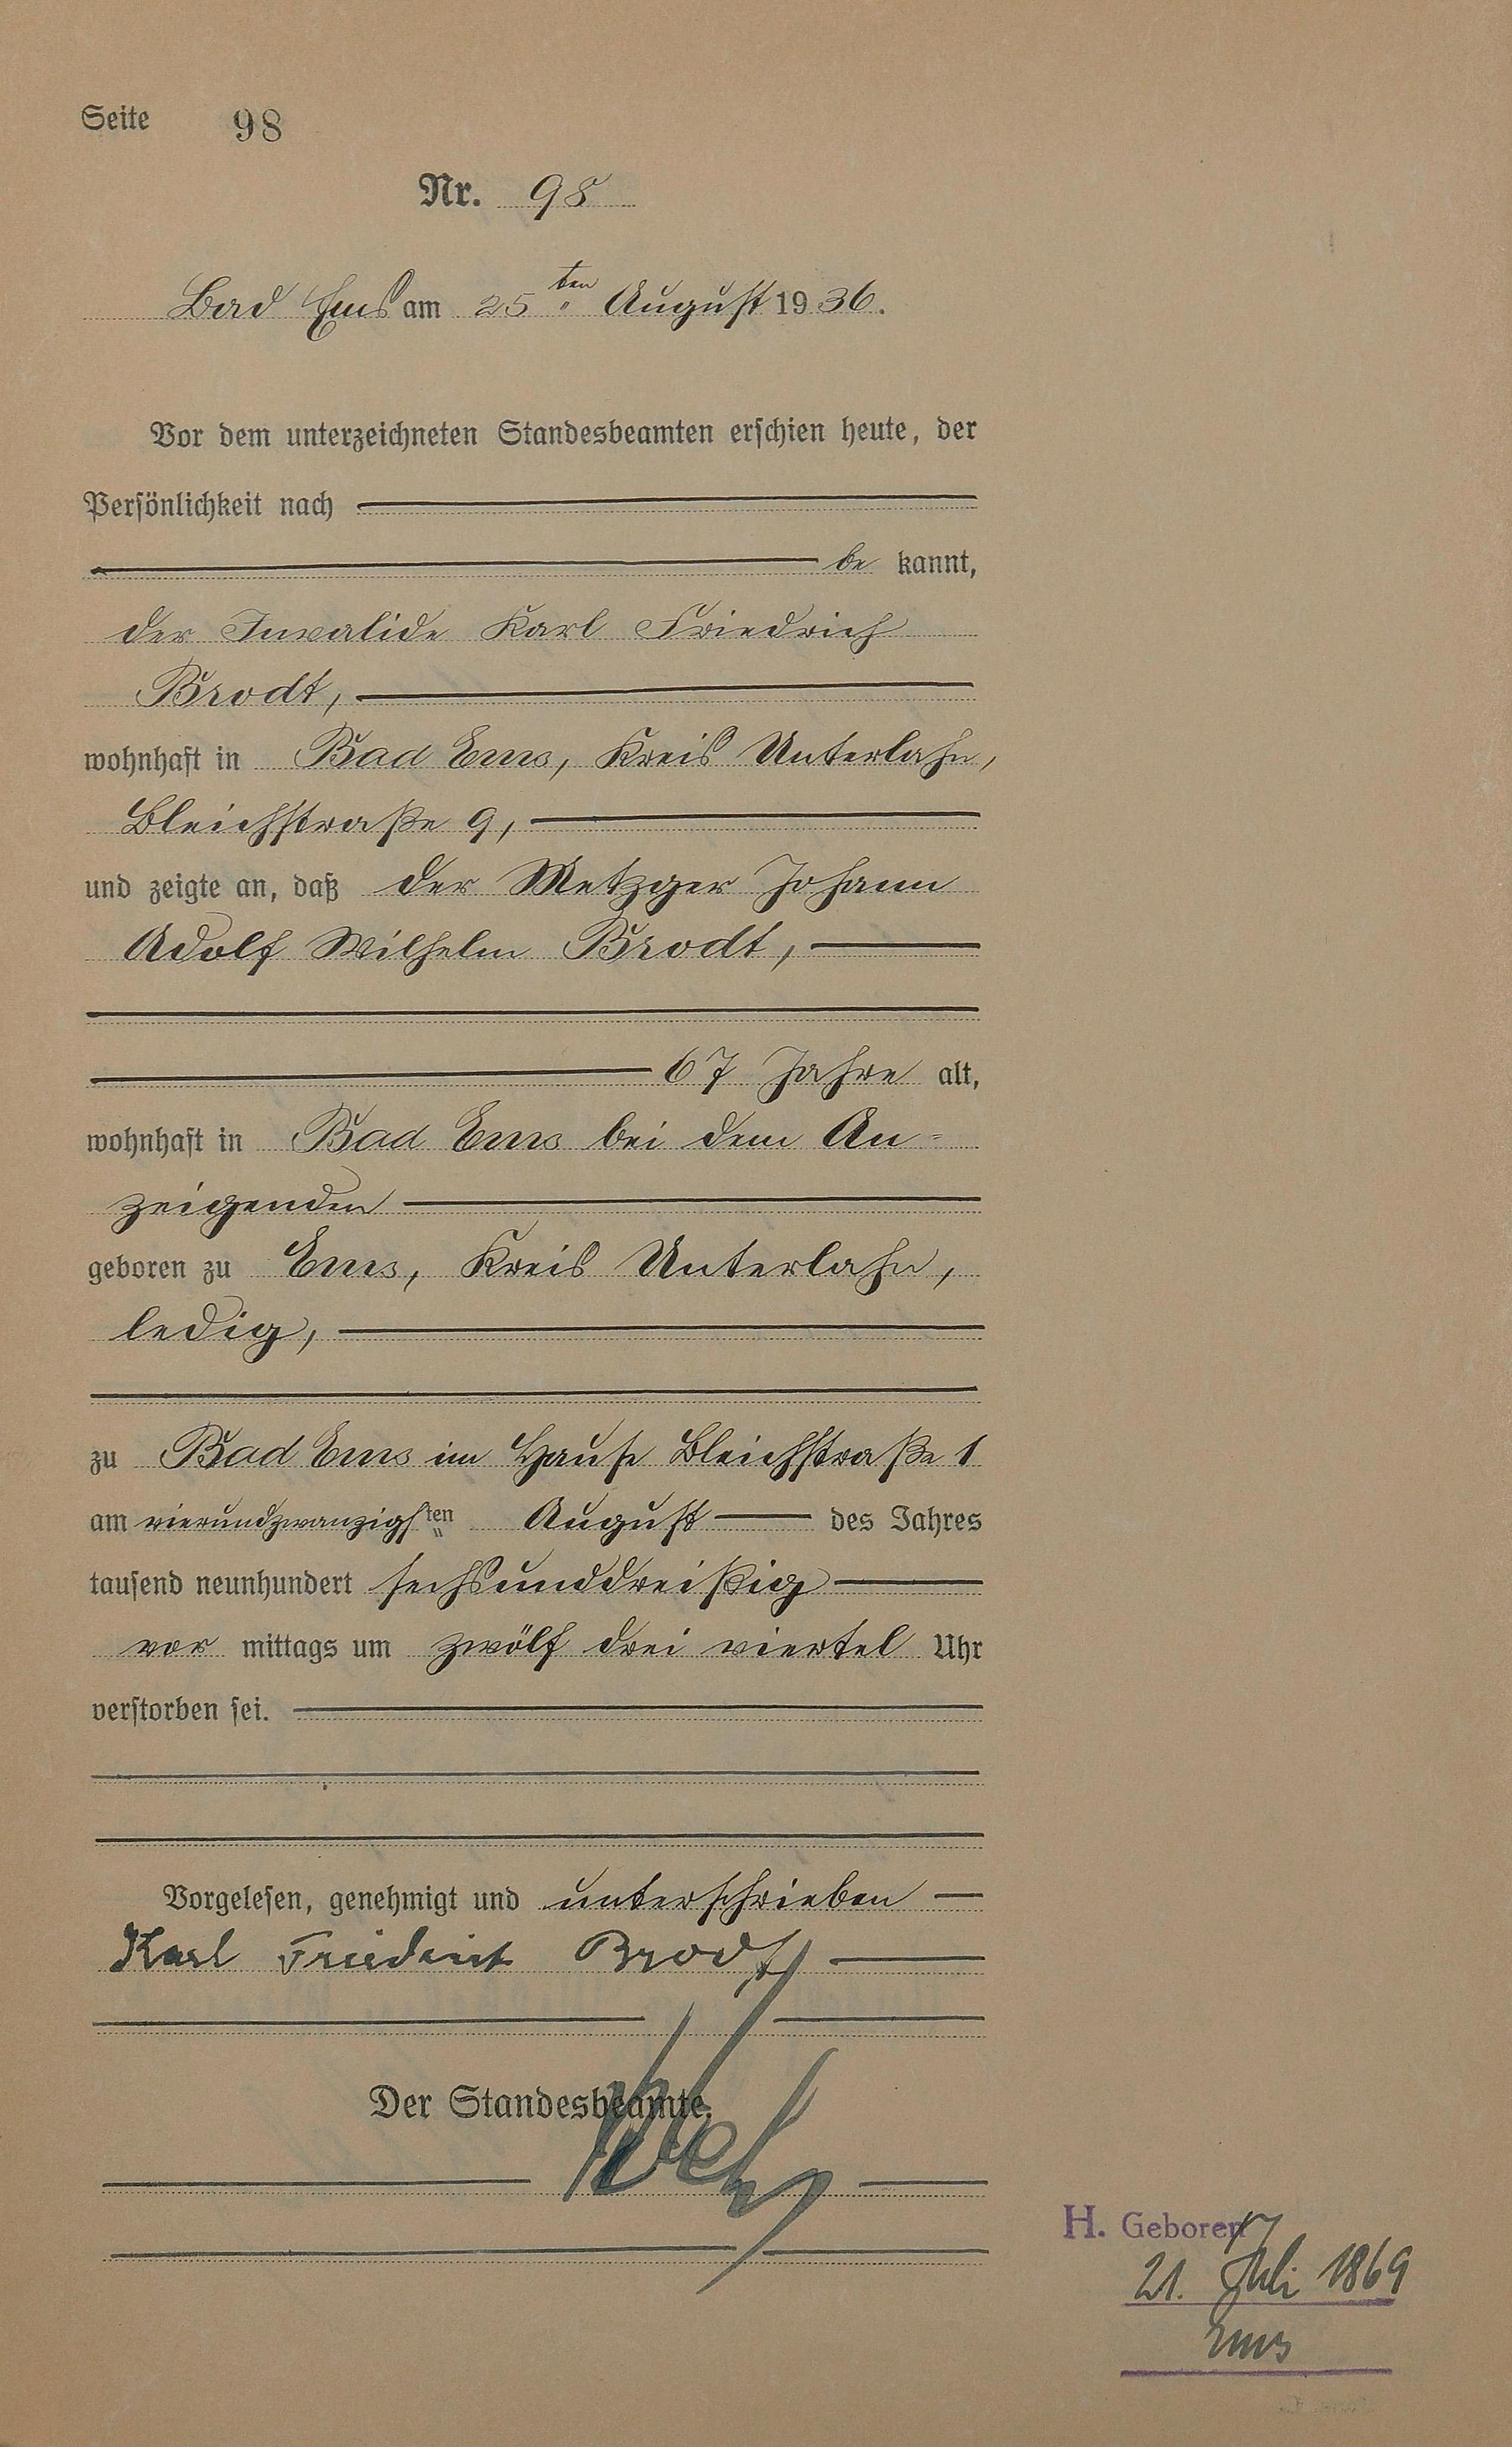 Seite 98
Nr. 98
Bad Ems am 25ten August 1936.
Vor dem unterzeichneten Standesbeamten erschien heute, der
Persönlichkeit nach
be kannt,
der Invalide Karl Friedrich
Brodt,
wohnhaft in Bad Ems, Kreis Unterlahn,
Bleichstraße 9,
und zeigte an, daß der Metzger Johann
Adolf Wilhelm Brodt,
67 Jahre alt,
wohnhaft in Bad Ems bei dem An-
zeigenden
geboren zu Ems, Kreis Unterlahn,
ledig,
zu Bad Ems im Hause Bleichstraße 1
am vierundzwanzigsten August des Jahres
tausend neunhundert sechsunddreißig
vor mittags um zwölf drei viertel Uhr
verstorben sei.
Vorgelesen, genehmigt und unterschrieben
Karl Brodt
Der Standesbeamte.
H. Geboren
21. Juli 1869
Ems